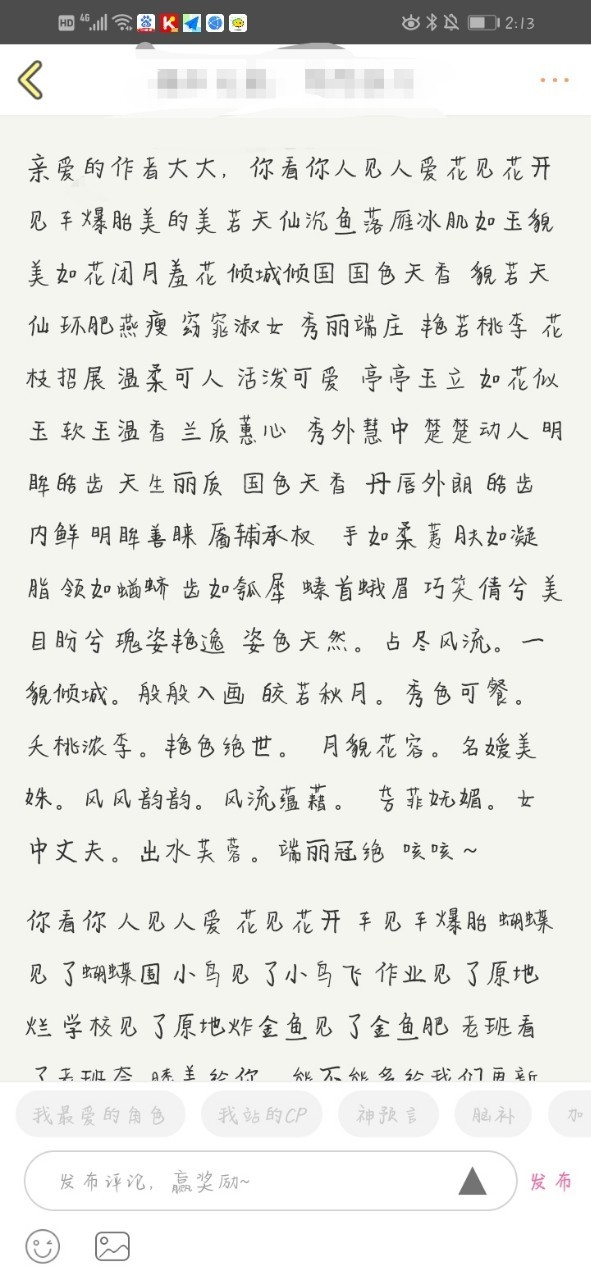 HD 4G 2:13
亲爱的作者大大，你看你人见人爱花见花开
见车爆胎美的美若天仙沉鱼落雁冰肌如玉貌
美如花闭月羞花 倾城倾国 国色天香 貌若天
仙 环肥燕瘦 窈窕淑女 秀丽端庄 艳若桃李 花
枝招展 温柔可人 活泼可爱 亭亭玉立 如花似
玉 软玉温香 兰质蕙心 秀外慧中 楚楚动人 明
眸皓齿 天生丽质 国色天香 丹唇外朗 皓齿
内鲜 明眸善睐 靥辅承权 手如柔荑 肤如凝
脂 领如蝤蛴 齿如瓠犀 螓首蛾眉 巧笑倩兮 美
目盼兮 瑰姿艳逸 姿色天然。占尽风流。一
貌倾城。般般入画 皎若秋月。秀色可餐。
夭桃浓李。艳色绝世。 月貌花容。名媛美
姝。风风韵韵。风流蕴藉。 芳菲妩媚。女
中丈夫。出水芙蓉。端丽冠绝 咳咳～
你看你 人见人爱 花见花开 车见车爆胎 蝴蝶
见了蝴蝶围 小鸟见了小鸟飞 作业见了原地
烂 学校见了原地炸金鱼见了金鱼肥 老班看
我最爱的角色 我站的CP 神预言 脑补 加
发布评论，赢奖励~ 发布